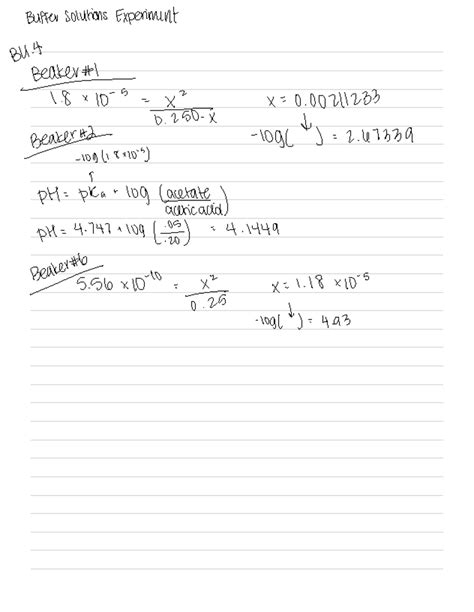 Buffer Solutions Experiment
BU.4
Beaker #1
1.8 × 10⁻⁵ = x² / 0.250-x    x = 0.00211233
-log(↓) = 2.67339
Beaker #2
-log(1.8×10⁻⁵)
↑
pH = pKa + log (acetate / acetic acid)
pH = 4.747 + log (.05 / .20) = 4.1449
Beaker #6
5.56 × 10⁻¹⁰ = x² / 0.25    x = 1.18 × 10⁻⁵
-log(↓) = 4.93